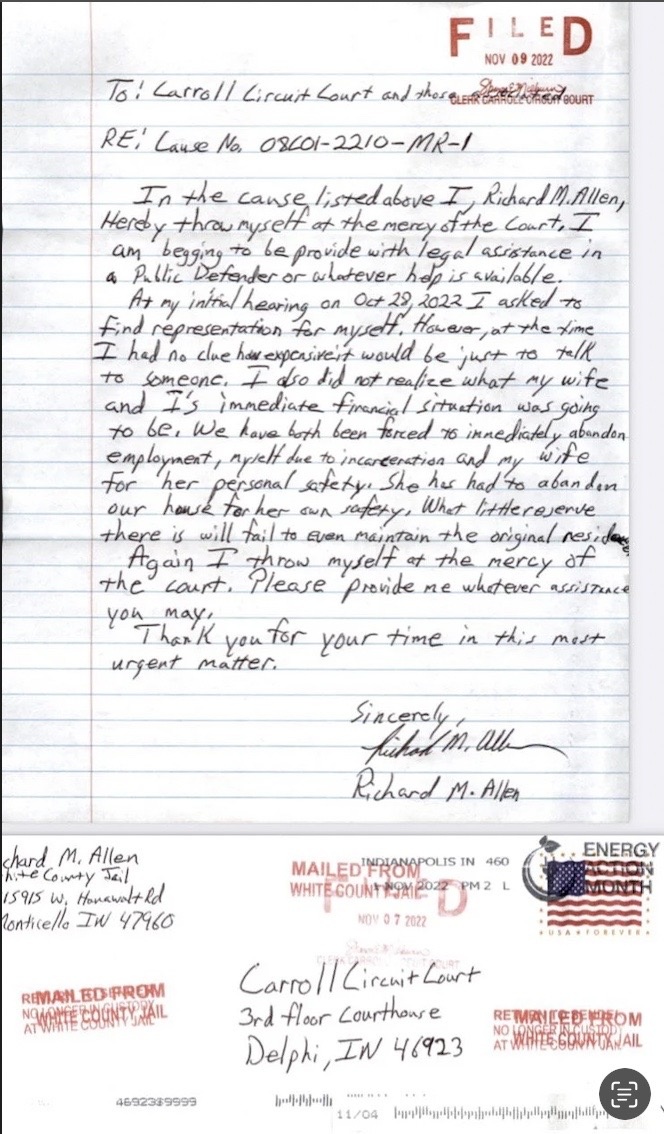 FILED
NOV 09 2022
To: Carroll Circuit Court and those associated
CLERK CARROLL CIRCUIT COURT
RE: Cause No. 08C01-2210-MR-1
In the cause listed above I, Richard M. Allen,
Hereby throw myself at the mercy of the Court. I
am begging to be provide with legal assistance in
a Public Defender or whatever help is available.
At my initial hearing on Oct 28, 2022 I asked to
find representation for myself. However, at the time
I had no clue how expensive it would be just to talk
to someone. I also did not realize what my wife
and I's immediate financial situation was going
to be. We have both been forced to immediately abandon
employment, myself due to incarceration and my wife
for her personal safety. She has had to abandon
our house for her own safety. What little reserve
there is will fail to even maintain the original
Again I throw myself at the mercy of
the court. Please provide me whatever assistance
you may.
Thank you for your time in this most
urgent matter.
Sincerely,
Richard M. Allen
Richard M. Allen
chard M. Allen
hite County Jail
15915 W. Honawalt Rd
Monticello IN 47960
INDIANAPOLIS IN 460
NOV 2022 PM 2 L
ENERGY
ACTION
MONTH
USA FOREVER
MAILED FROM
WHITE COUNTY JAIL
FILED
NOV 07 2022
CLERK CARROLL CIRCUIT COURT
Carroll Circuit Court
3rd floor Courthouse
Delphi, IN 46923
MAILED FROM
WHITE COUNTY JAIL
RETURN TO SENDER
NO LONGER IN CUSTODY
AT WHITE COUNTY JAIL
MAILED FROM
WHITE COUNTY JAIL
RETURN TO SENDER
NO LONGER IN CUSTODY
AT WHITE COUNTY JAIL
46923$9999
11/04